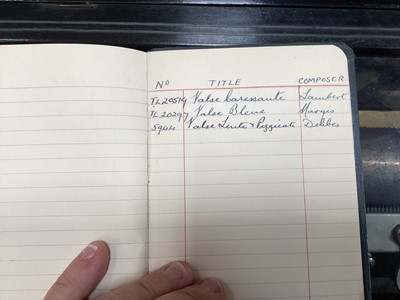 No TITLE COMPOSER
TL20519 Valse Caressante Lambert
TL20297 Valse Bleue Margis
5944 Valse Lente & Pizzicati Delibes